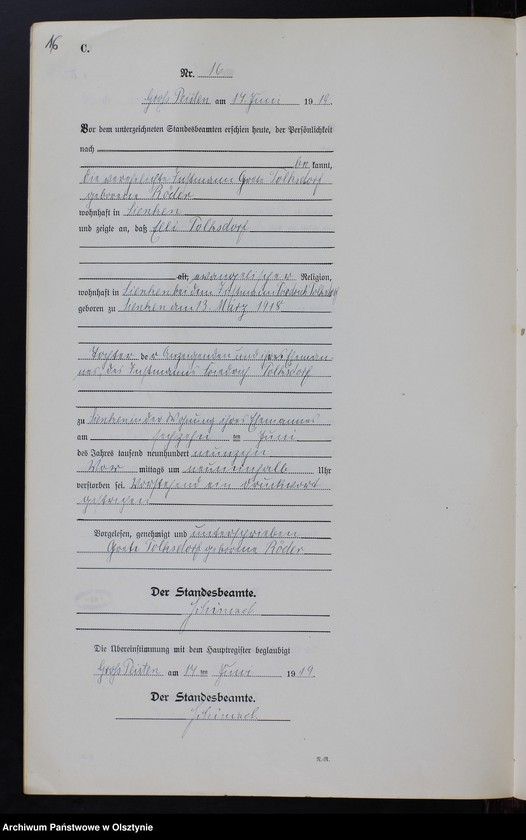 16
C.
Nr. 16
Groß Peisten am 17 Juni 1919.
Vor dem unterzeichneten Standesbeamten erschien heute, der Persönlichkeit
nach
be kannt,
die verehelichte Instmann Grete Tolksdorf
geborene Röder
wohnhaft in
und zeigte an, daß Elli Tolksdorf
alt, evangelischer Religion,
wohnhaft in bei dem Instmann Friedrich Tolksdorf
geboren zu am 13. März 1918
Tochter der Anzeigenden und ihres Eheman
nes, des Instmanns Friedrich Tolksdorf
zu in der Wohnung ihres Ehemannes
am sechzehn ten Juni
des Jahres tausend neunhundert neunzehn
Vor mittags um neuneinhalb Uhr
verstorben sei. Vorstehend ein Druckwort
gestrichen
Vorgelesen, genehmigt und unterschrieben
Grete Tolksdorf geborene Röder
Der Standesbeamte.
Die Übereinstimmung mit dem Hauptregister beglaubigt
Groß Peisten am 17 ten Juni 1919.
Der Standesbeamte.
Archiwum Państwowe w Olsztynie